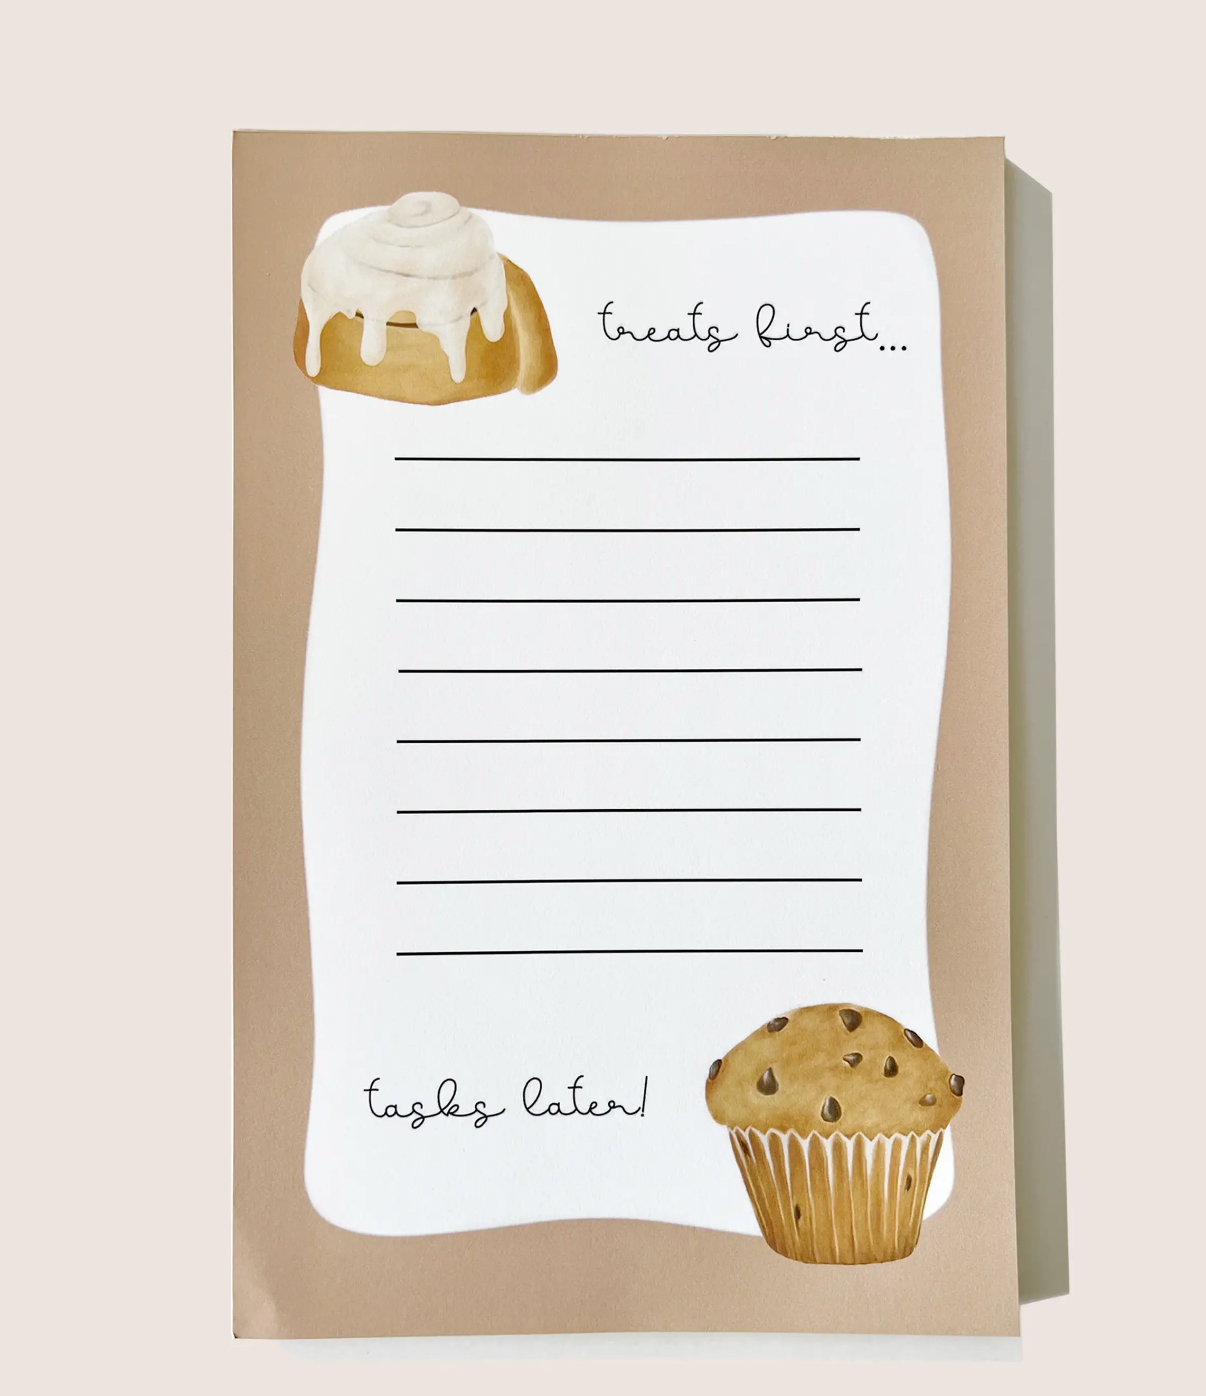 treats first...
tasks later!